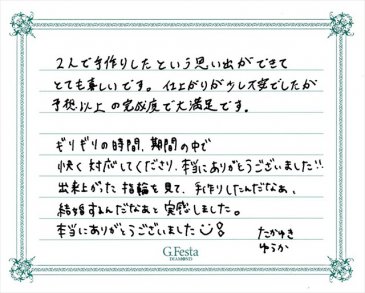 2人で手作りしたという思い出ができて
とても嬉しいです。仕上がりが少し不安でしたが
予想以上の完成度で大満足です。
ギリギリの時間、期間の中で
快く対応してくださり、本当にありがとうございました!!
出来上がった指輪を見て、手作りしたんだなぁ、
結婚するんだなぁと実感しました。
本当にありがとうございました
たかゆき
ゆうか
G.Festa
DIAMOND